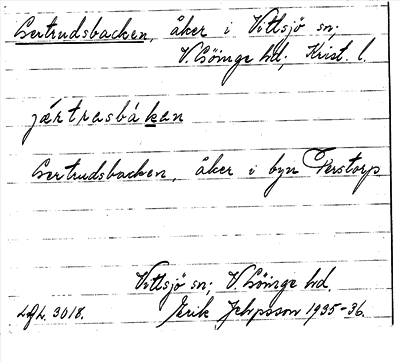 Gertrudsbacken, åker i Vittsjö sn;
V. Göinge hd; Krist. l.
jærtrasbákan
Gertrudsbacken, åker i byn Perstorp
Vittsjö sn; V. Göinge hd.
Erik Jeppsson 1935-36.
3018.